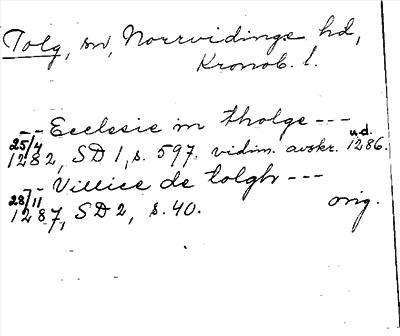 Tolg, sn, Norrvidinge hd,
Kronob. l.
- - Ecclesie in tholge - - -
25/4 1282, SD 1, s. 597. vidim. avskr. u.d. 1286.
- Villice de tolgh - - -
28/11 1287, SD 2, s. 40. orig.